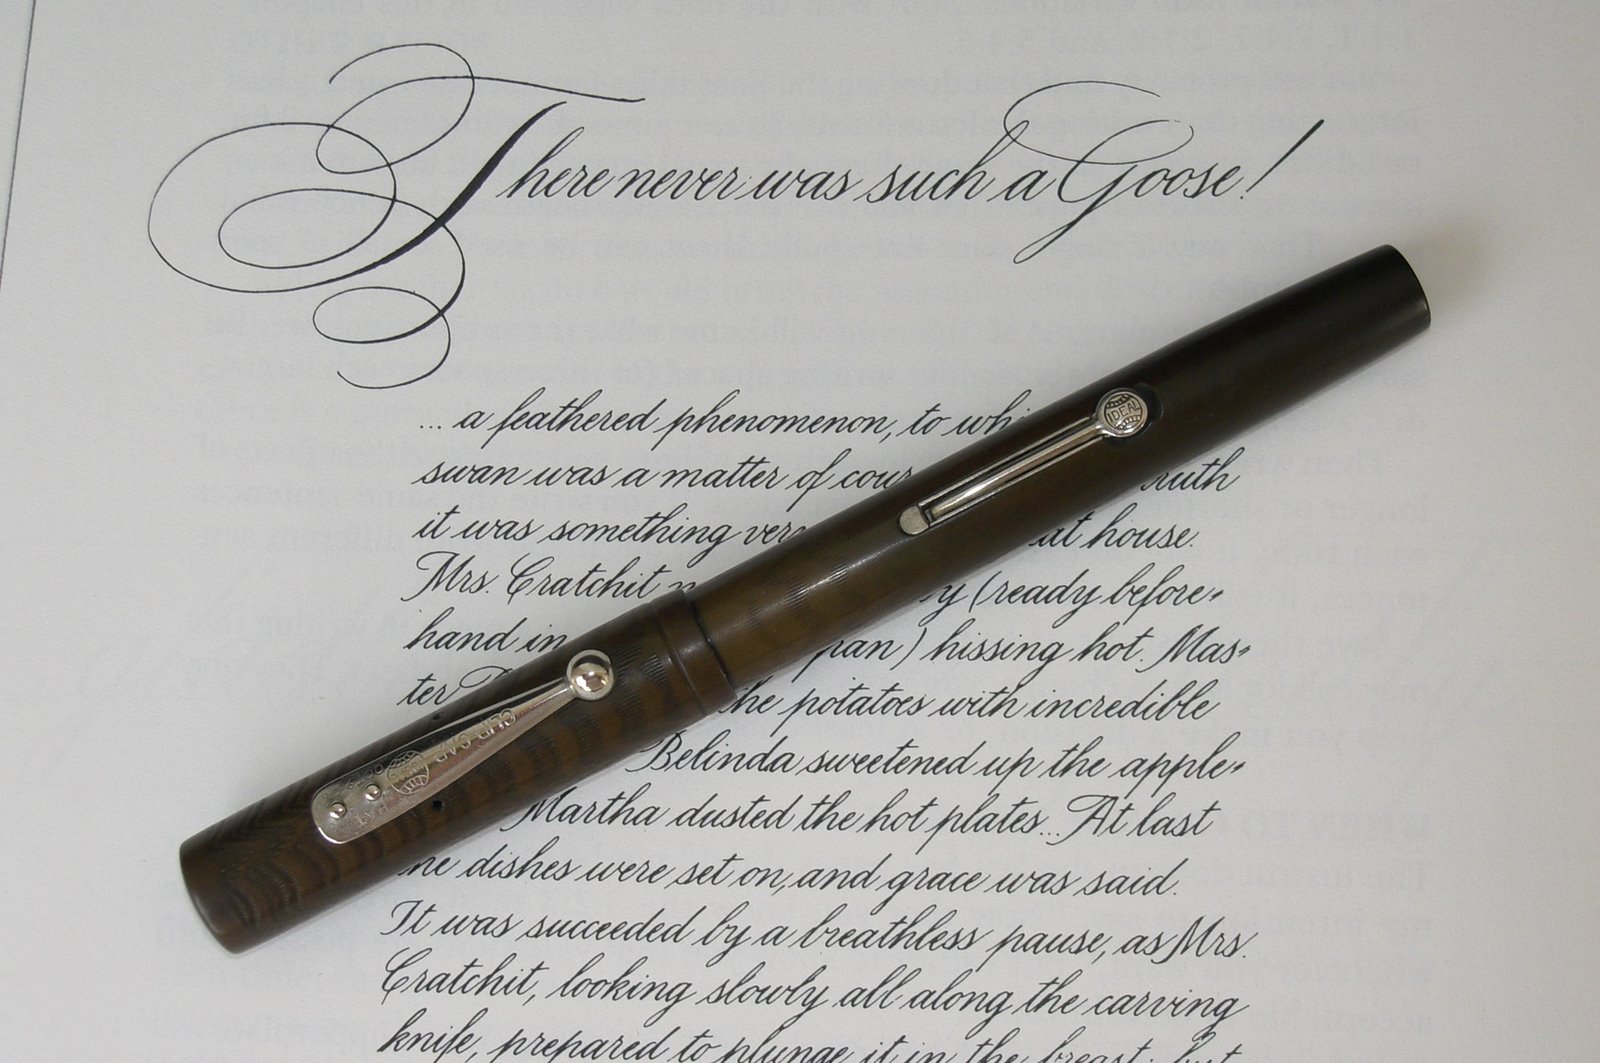 There never was such a Goose!
... a feathered phenomenon, to
swan was a matter of
it was something at house.
Mrs. Cratchit (ready before-
hand in hissing hot. Mas-
ter the potatoes with incredible
Belinda sweetened up the apple-
Martha dusted the hot plates... At last
dishes were set on, and grace was said.
It was succeeded by a breathless pause, as Mrs.
Cratchit, looking slowly all along the carving
knife, prepared to plunge it in the breast; but
IDEAL
CLIP-CAP